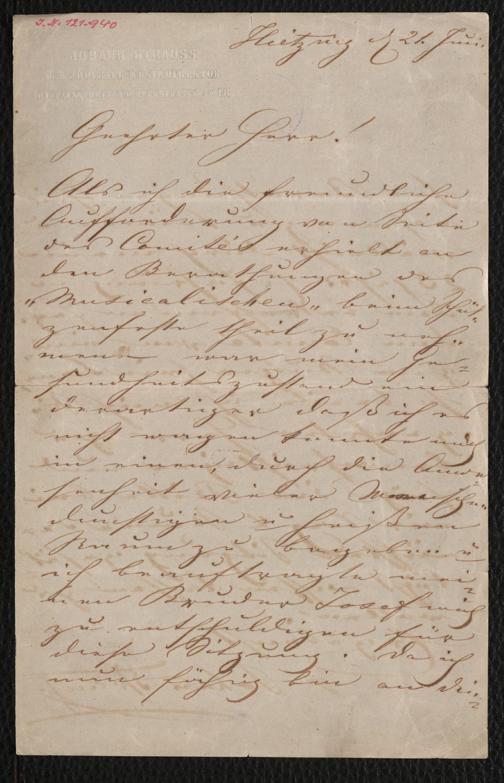 J.N. 121.940
JOHANN STRAUSS
Hietzing d 21. Juni
Geehrter Herr!
Als ich die freundliche
Aufforderung von Seite
des Comités erhielt an
den Berathungen des
„Musicalischen„ beim Schü-
zenfeste theil zu neh-
men – war mein Ge-
sundheitszustand ein
derartiger daß ich es
nicht wagen konnte mich
in einen, durch die Anwe-
senheit vieler Menschen
dunstigen u heißen
Raum zu begeben u
ich beauftragte mei-
nen Bruder Josef mich
zu entschuldigen für
diese Sitzung. Da ich
nun fähig bin an die-